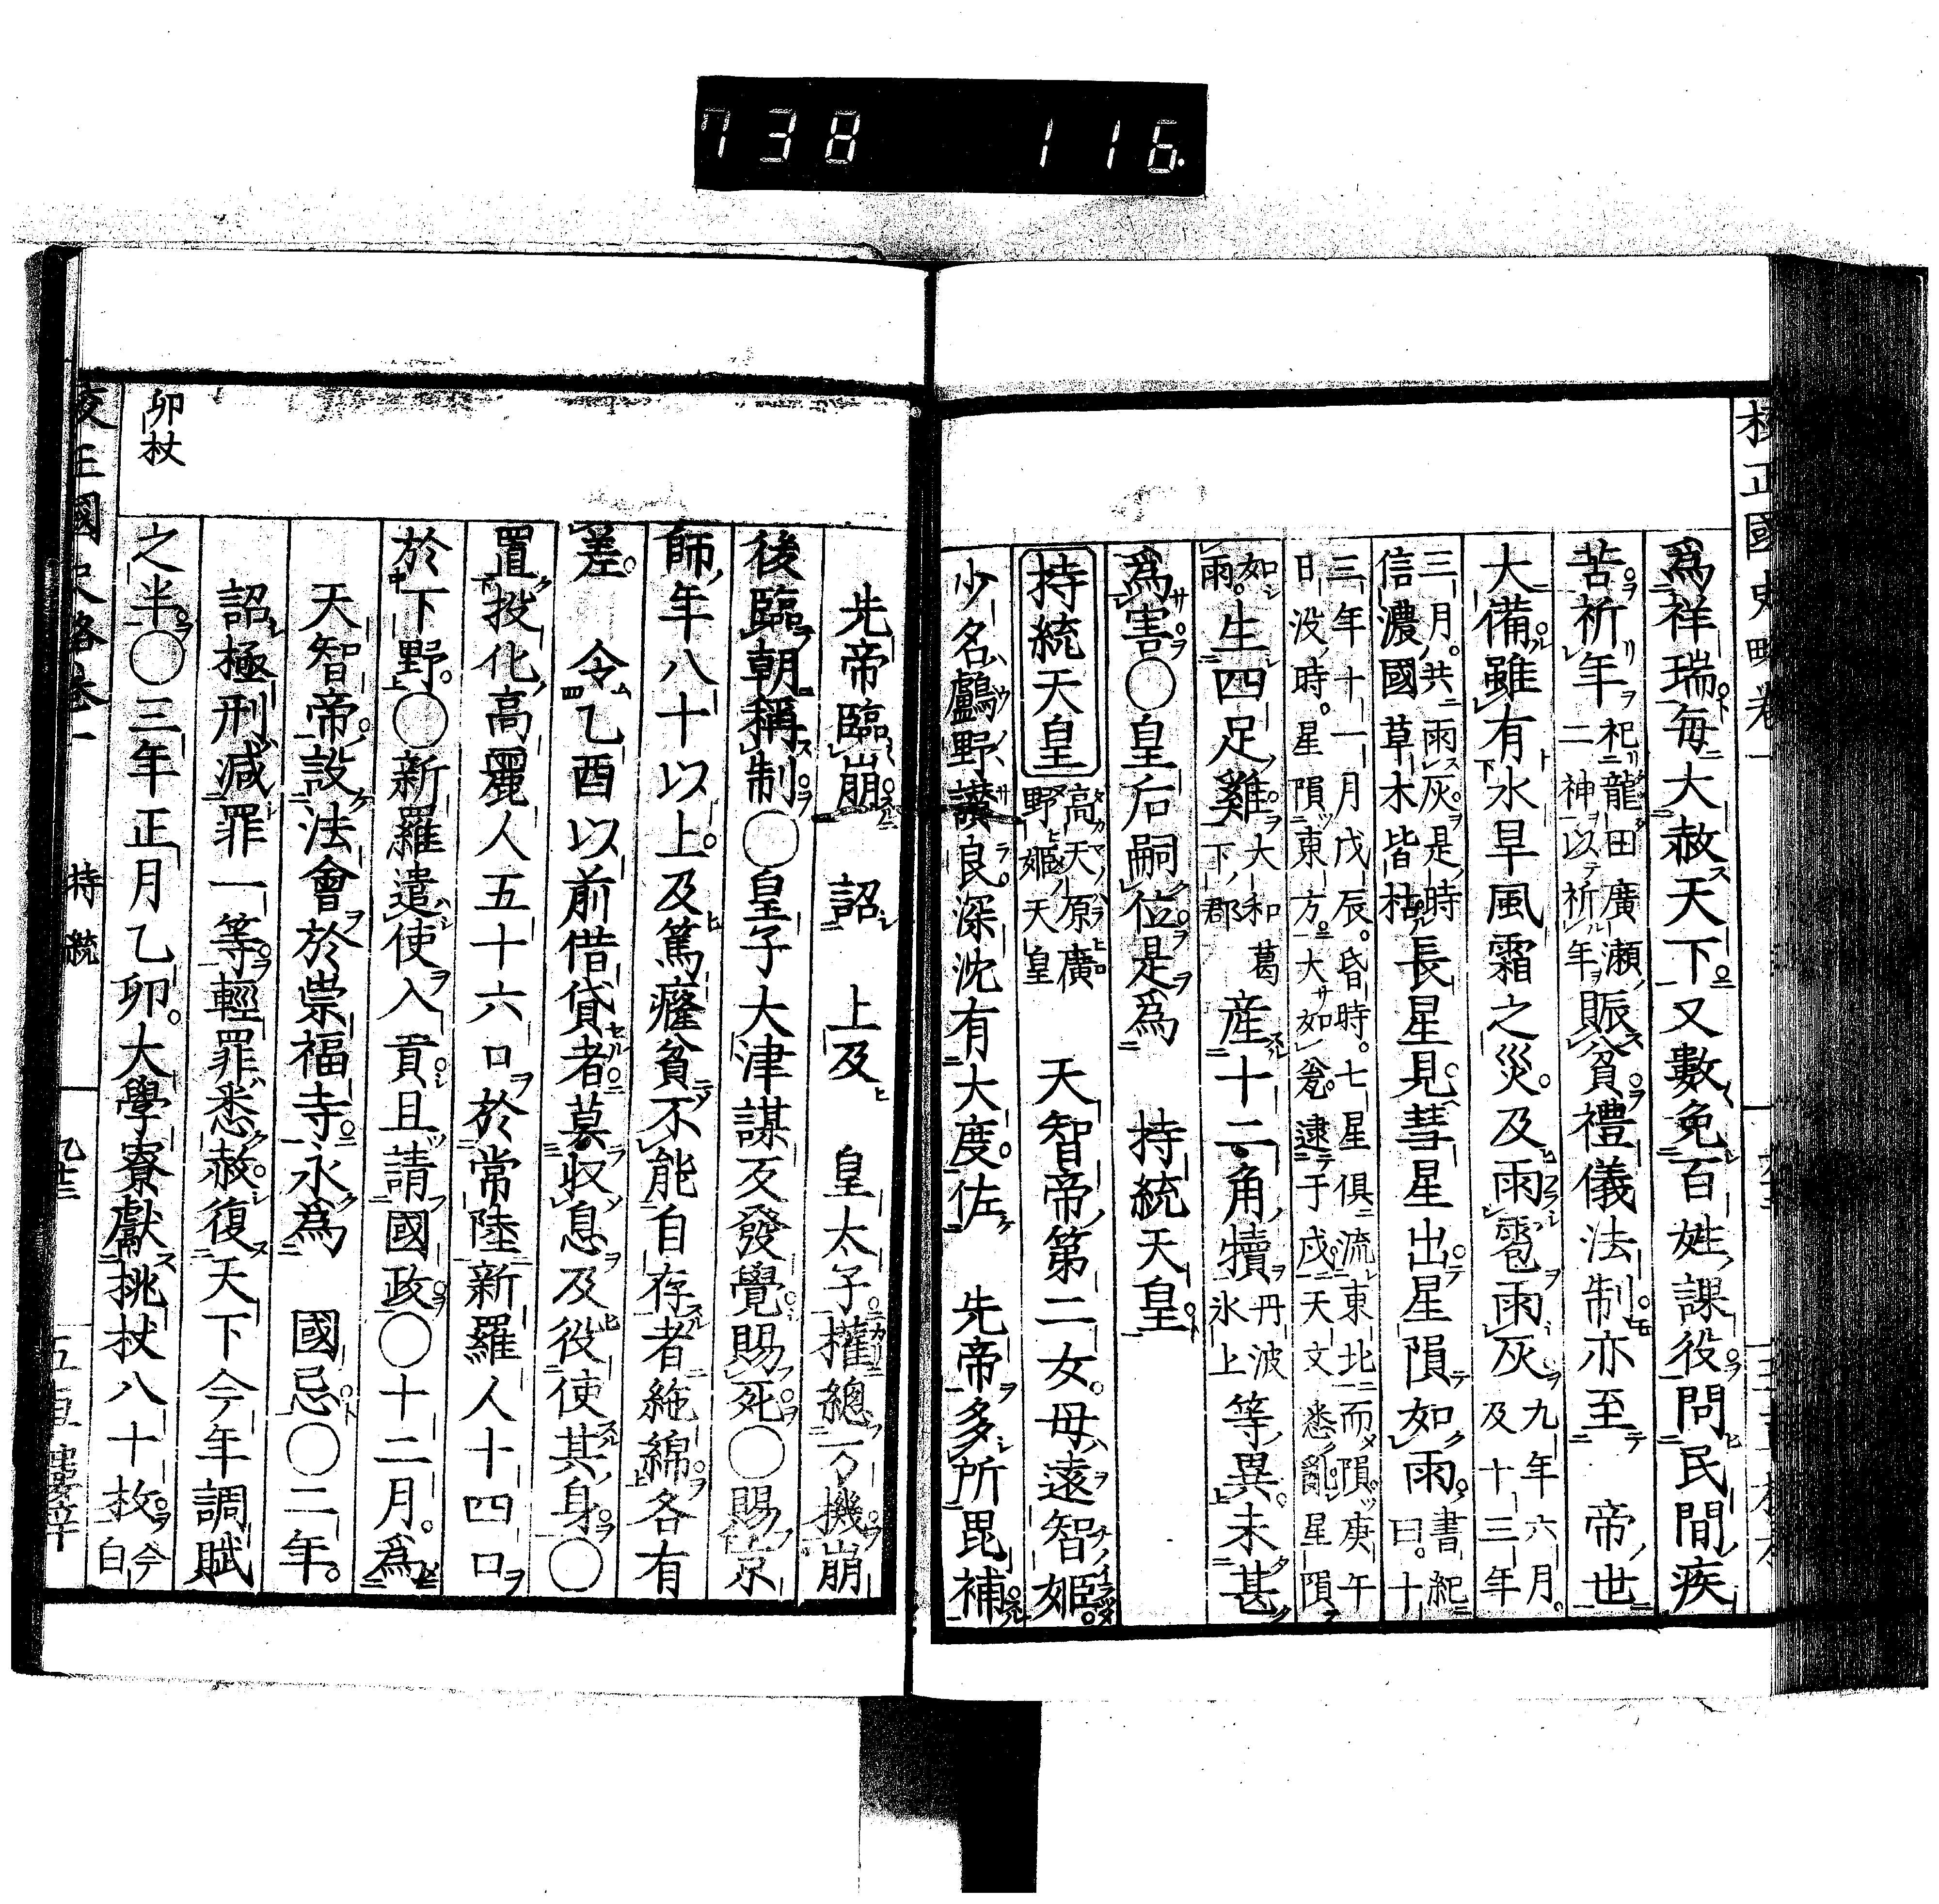 738 116
校正國史略卷一
爲祥瑞毎大赦天下又數免百姓課役問民間疾
苦祈年祀龍田廣瀬二神以祈年賑貧禮儀法制亦至 帝世
大備雖有水旱風霜之災及雨雹雨灰九年六月及十三年
三月共雨灰是時信濃國草木皆枯長星見彗星出星隕如雨書紀曰十
三年十一月戊辰昏時七星倶流東北而隕庚午日没時星隕東方大如瓮逮于戌天文悉亂星隕
如雨生四足雞大和葛下郡産十二角犢丹波氷上等異未甚
爲害○皇后嗣位是爲 持統天皇
持統天皇高天原廣野姫天皇 天智帝第二女母遠智姫
少名鸕野讃良深沈有大度佐 先帝多所毘補
先帝臨崩 詔 上及 皇太子權總万機崩
後臨朝稱制○皇子大津謀反發覺賜死○賜京
師年八十以上及篤癃貧不能自存者絁綿各有
差 令乙酉以前借貸者莫収息及役使其身○
置投化高麗人五十六口於常陸新羅人十四口
於下野○新羅遣使入貢且請國政○十二月爲
天智帝設法會於崇福寺永爲 國忌○二年
詔極刑減罪一等輕罪悉赦復天下今年調賦
之半○三年正月乙卯大學寮獻挑杖八十枚今白
卯杖
校正國史略卷一 持統 九十三 五車樓梓